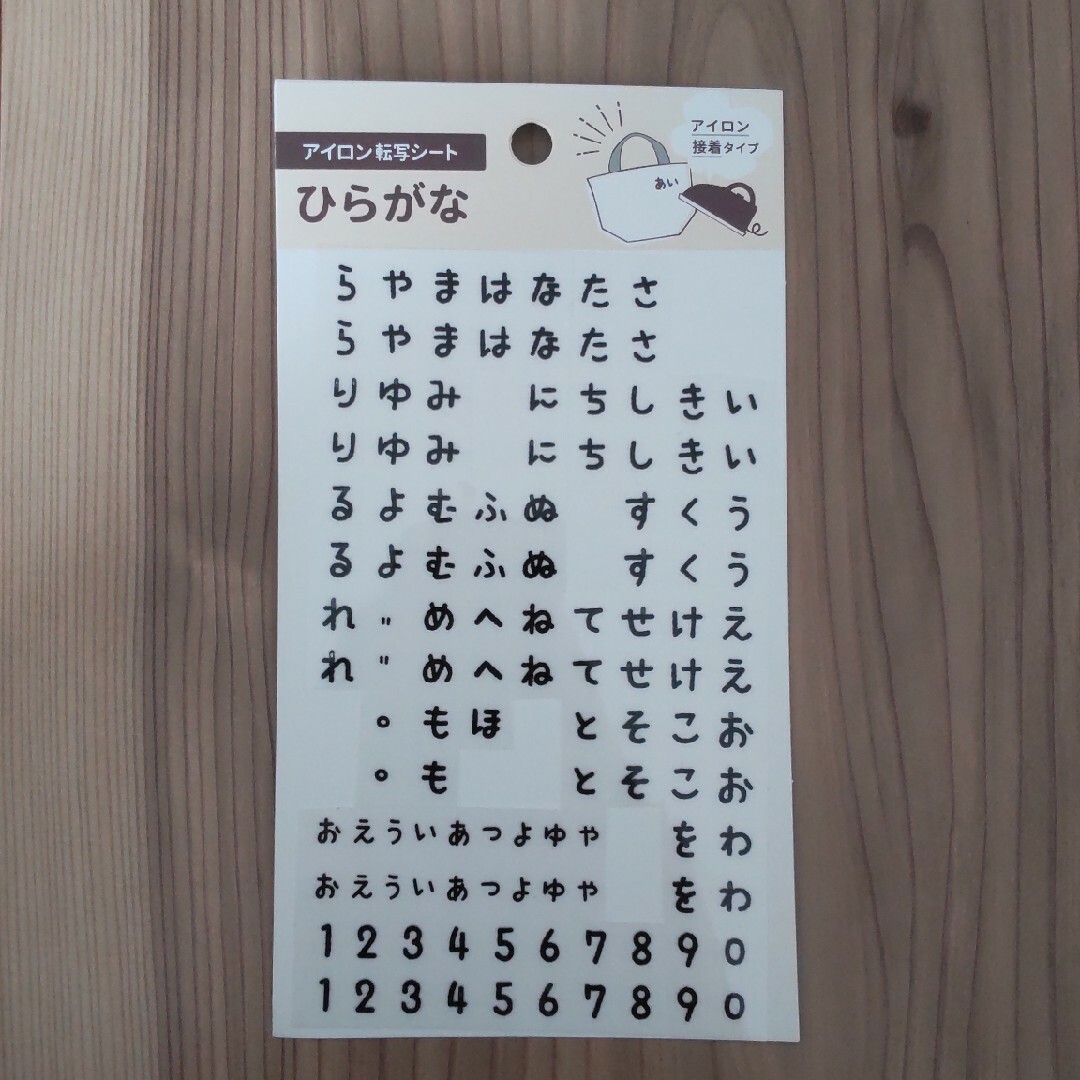 アイロン転写シート
ひらがな
アイロン
接着タイプ
あい
ら や ま は な た さ
ら や ま は な た さ
り ゆ み に ち し き い
り ゆ み に ち し き い
る よ む ふ ぬ す く う
る よ む ふ ぬ す く う
れ ゛ め へ ね て せ け え
れ ゛ め へ ね て せ け え
゜ も ほ と そ こ お
゜ も と そ こ お
ぉ ぇ ぅ ぃ ぁ っ ょ ゅ ゃ を わ
ぉ ぇ ぅ ぃ ぁ っ ょ ゅ ゃ を わ
1 2 3 4 5 6 7 8 9 0
1 2 3 4 5 6 7 8 9 0